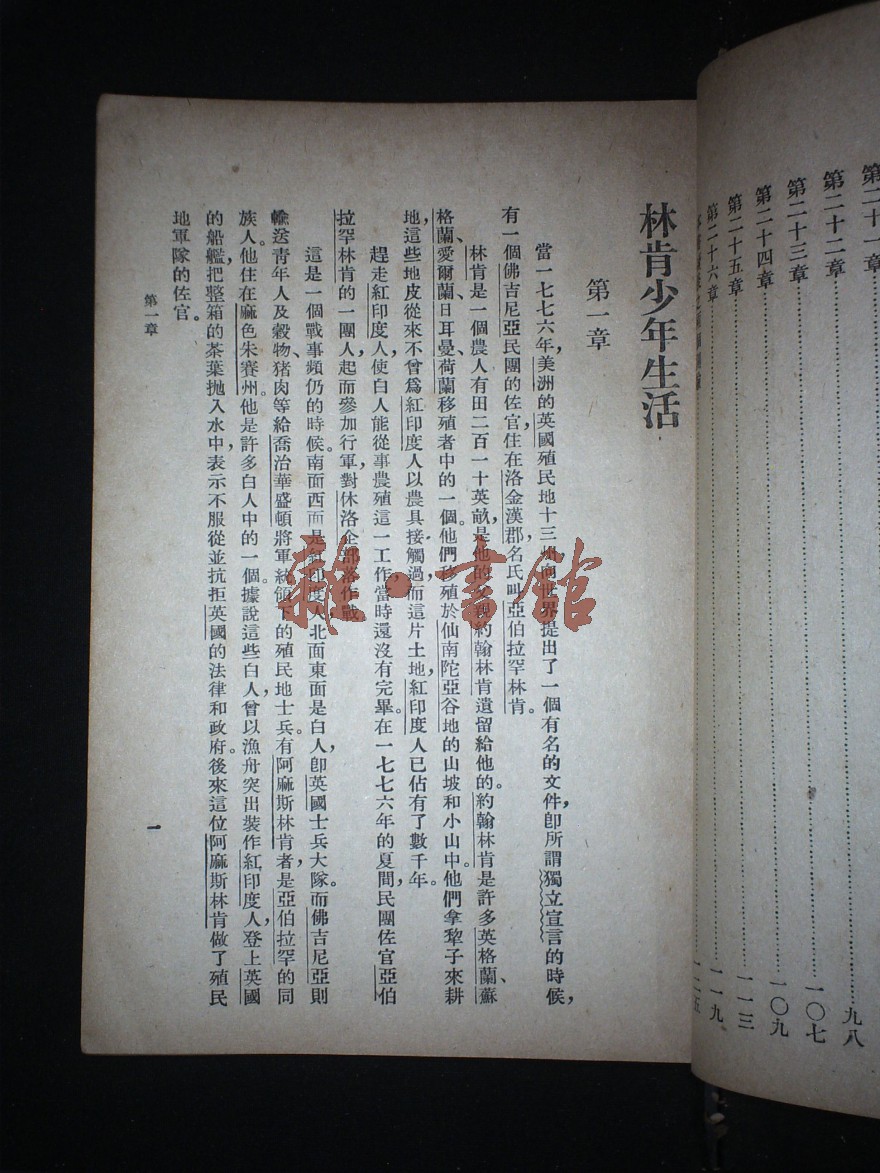 第二十一章……九八
第二十二章……一〇七
第二十三章……一〇九
第二十四章……一一三
第二十五章……一一九
第二十六章……一二五
林肯少年生活
第一章
當一七七六年，美洲的英國殖民地十三州向世界提出了一個有名的文件，卽所謂獨立宣言的時候，
有一個佛吉尼亞民團的佐官住在洛金漢郡名氏叫亞伯拉罕林肯。
林肯是一個農人有田二百一十英畝是他的父親約翰林肯遺留給他的。約翰林肯是許多英格蘭、蘇
格蘭、愛爾蘭、日耳曼、荷蘭移殖者中的一個。他們移殖於仙南陀亞谷地的山坡和小山中。他們拿犂子來耕
地，這些地皮從來不曾爲紅印度人以農具接觸過，而這片土地，紅印度人已佔有了數千年。
趕走紅印度人，使白人能從事農殖這一工作當時還沒有完畢。在一七七六年的夏間，民團佐官亞伯
拉罕林肯的一團人，起而參加行軍，對休洛企部落作戰。
這是一個戰事頻仍的時候。南面西面是紅印度人北面東面是白人，卽英國士兵大隊。而佛吉尼亞則
輸送靑年人及穀物、猪肉等給喬治華盛頓將軍統領下的殖民地士兵。有阿麻斯林肯者，是亞伯拉罕的同
族人。他住在麻色朱賽州。他是許多白人中的一個。據說這些白人曾以漁舟突出裝作紅印度人，登上英國
的船艦，把整箱的茶葉拋入水中，表示不服從並抗拒英國的法律和政府。後來這位阿麻斯林肯做了殖民
地軍隊的佐官。
第一章
一
雜·書館